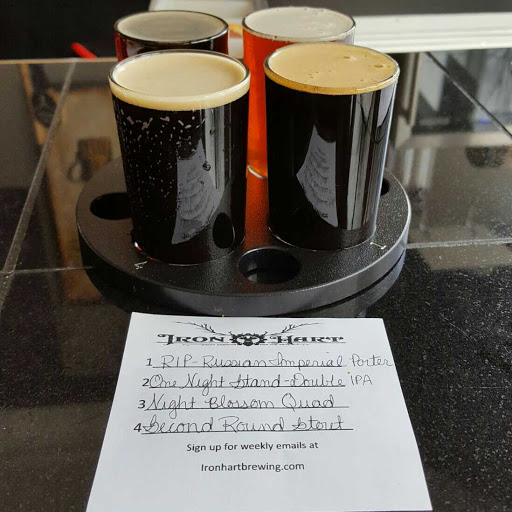 IRON HART
1 RIP-Russian Imperial Porter
2 One Night Stand-Double IPA
3 Night Blossom Quad
4 Second Round Stout
Sign up for weekly emails at
Ironhartbrewing.com